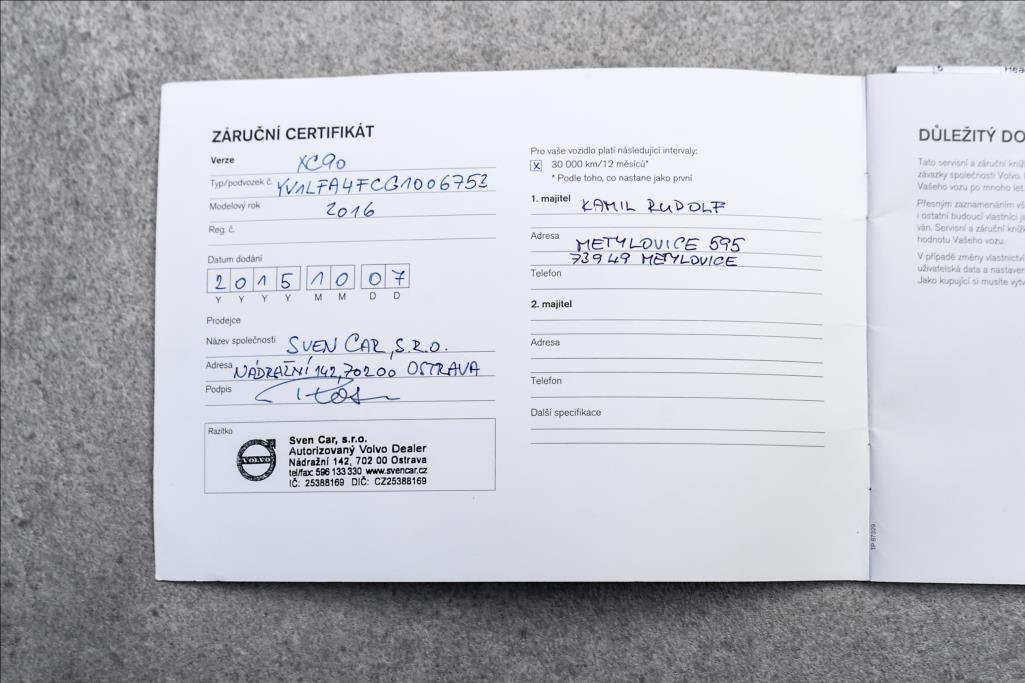 ZÁRUČNÍ CERTIFIKÁT
Verze XC90
Typ/podvozek č. YV1LFA4FCG1006753
Modelový rok 2016
Reg. č.
Datum dodání
2015 10 07
Y Y Y Y M M D D
Prodejce
Název společnosti SVEN CAR, S.R.O.
Adresa NÁDRAŽNÍ 142, 70200 OSTRAVA
Podpis
Razítko
VOLVO
Sven Car, s.r.o.
Autorizovaný Volvo Dealer
Nádražní 142, 702 00 Ostrava
tel/fax: 596 133 330 www.svencar.cz
IČ: 25388169 DIČ: CZ25388169
Pro vaše vozidlo platí následující intervaly:
X 30 000 km/12 měsíců*
* Podle toho, co nastane jako první
1. majitel KAMIL RUDOLF
Adresa METYLOVICE 595
73949 METYLOVICE
Telefon
2. majitel
Adresa
Telefon
Další specifikace
TP 87329
DŮLEŽITÝ DO
Tato servisní a záruční kníž
závazky společnosti Volvo.
Vašeho vozu po mnoho let.
Přesným zaznamenáním vš
i ostatní budoucí vlastníci je
ván. Servisní a záruční kníž
hodnotu Vašeho vozu.
V případě změny vlastnictví
uživatelská data a nastaven
Jako kupující si musíte vytv